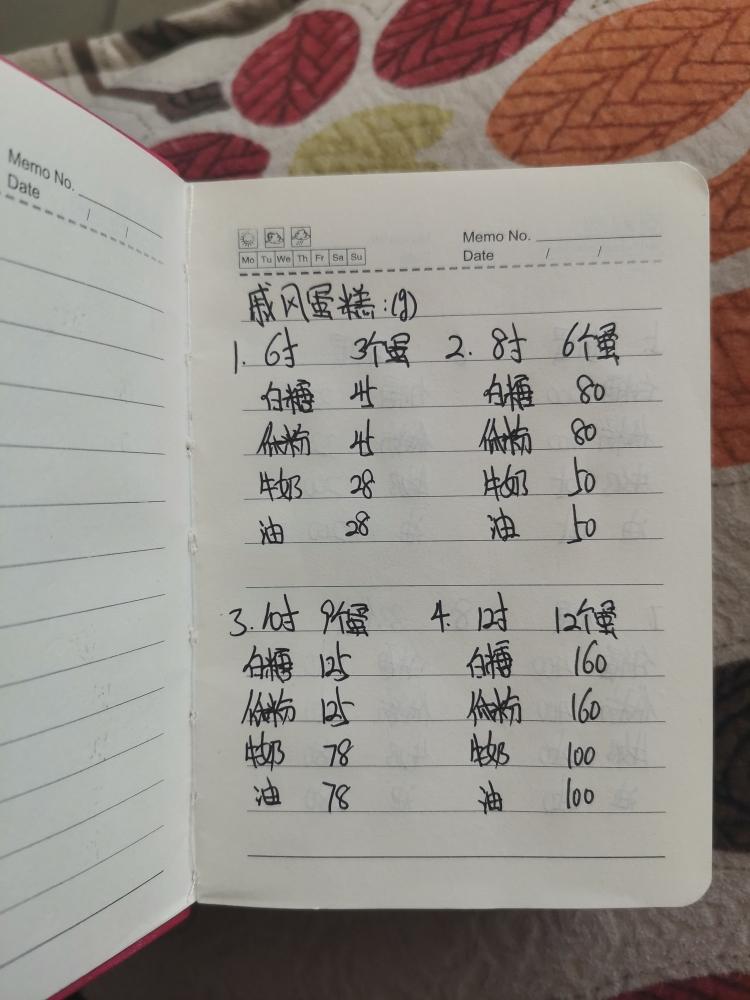 Memo No.
Date / /
Mo Tu We Th Fr Sa Su
Memo No.
Date / /
戚风蛋糕:(g)
1. 6寸 3个蛋 2. 8寸 6个蛋
白糖 45 白糖 80
低粉 45 低粉 80
牛奶 28 牛奶 50
油 28 油 50
3. 10寸 9个蛋 4. 12寸 12个蛋
白糖 125 白糖 160
低粉 125 低粉 160
牛奶 78 牛奶 100
油 78 油 100